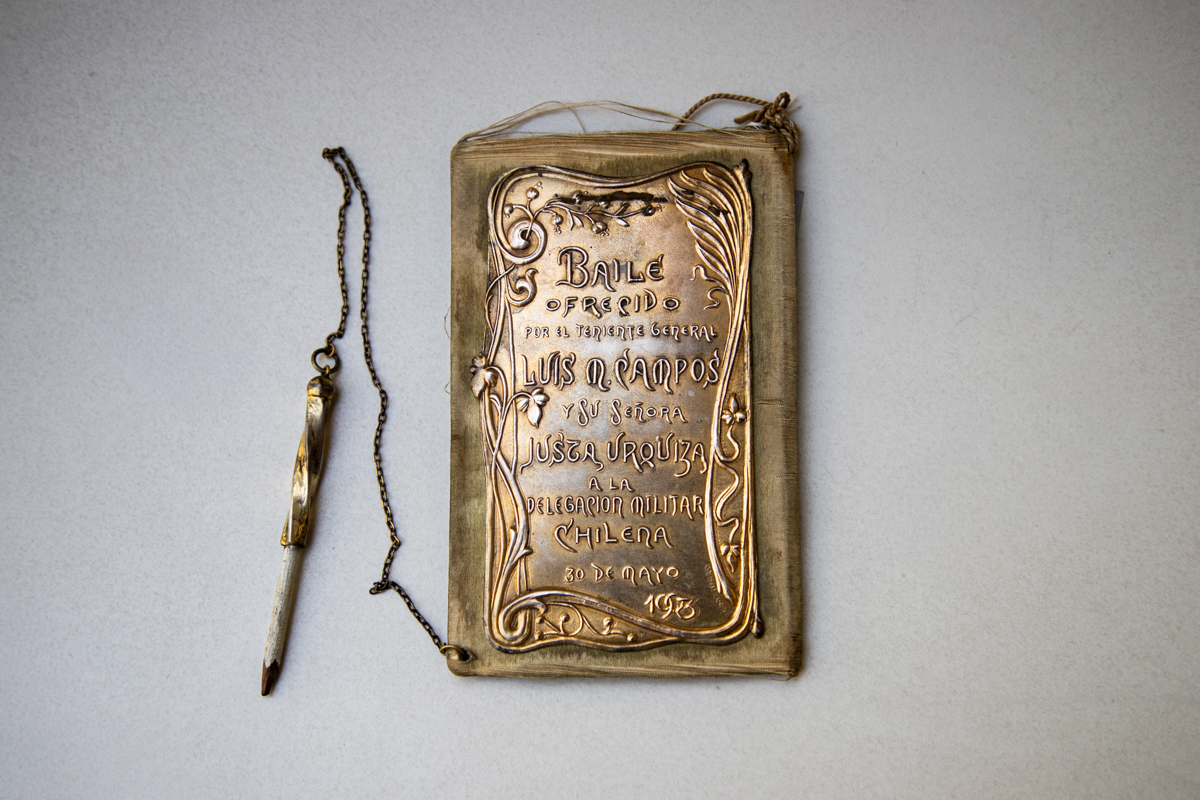 BAILE
OFRECIDO
POR EL TENIENTE GENERAL
LUIS M. CAMPOS
Y SU SEÑORA
JUSTA URQUIZA
A LA
DELEGACION MILITAR
CHILENA
30 DE MAYO
1903